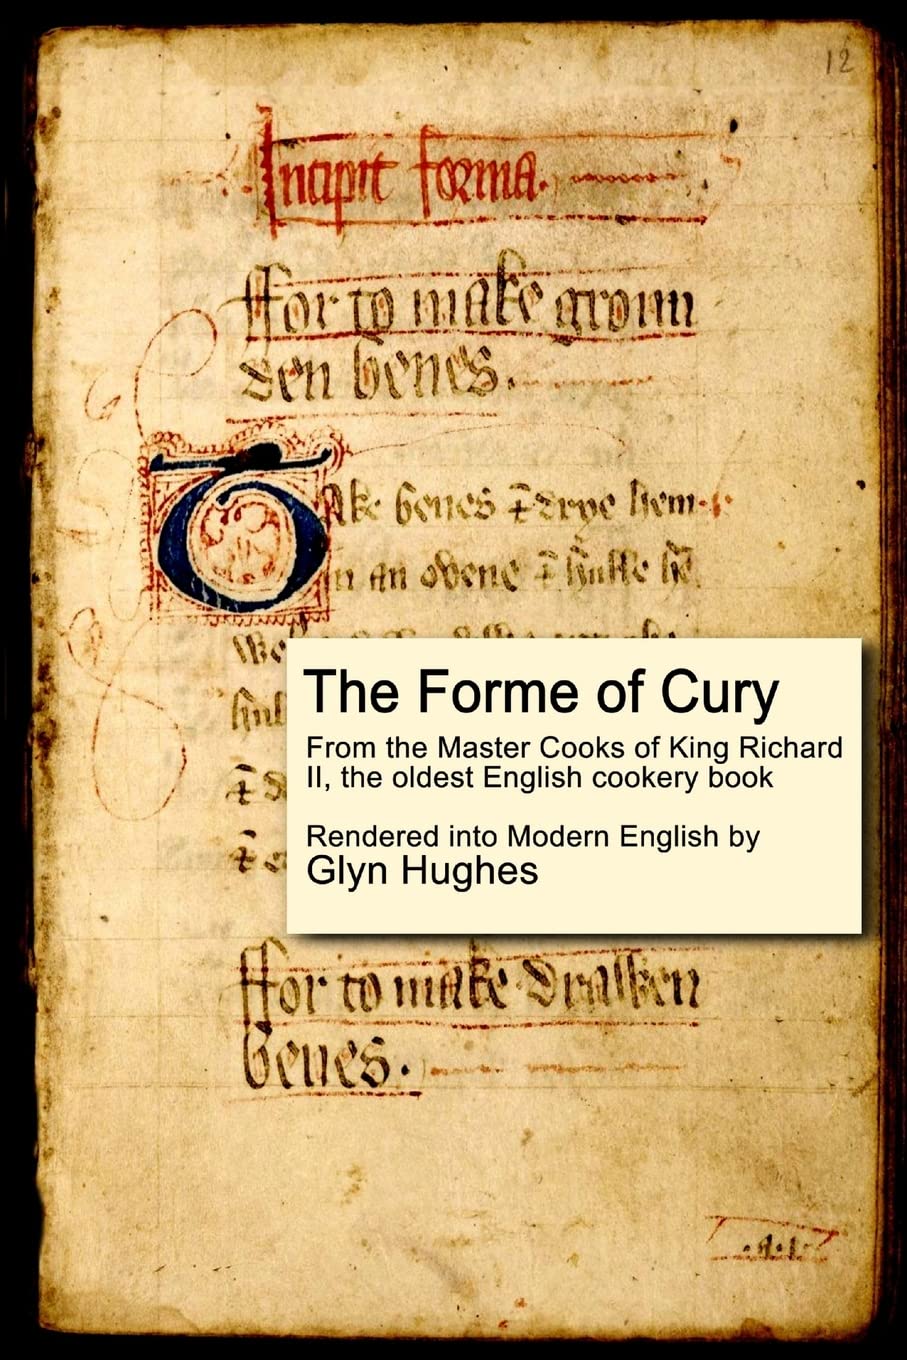 12
Incipit forma.
ffor to make groun
den benes.
Take benes & drye hem
in an ovene & hulle hē
We
hul
& d
&
The Forme of Cury
From the Master Cooks of King Richard
II, the oldest English cookery book
Rendered into Modern English by
Glyn Hughes
ffor to make drawen
benes.